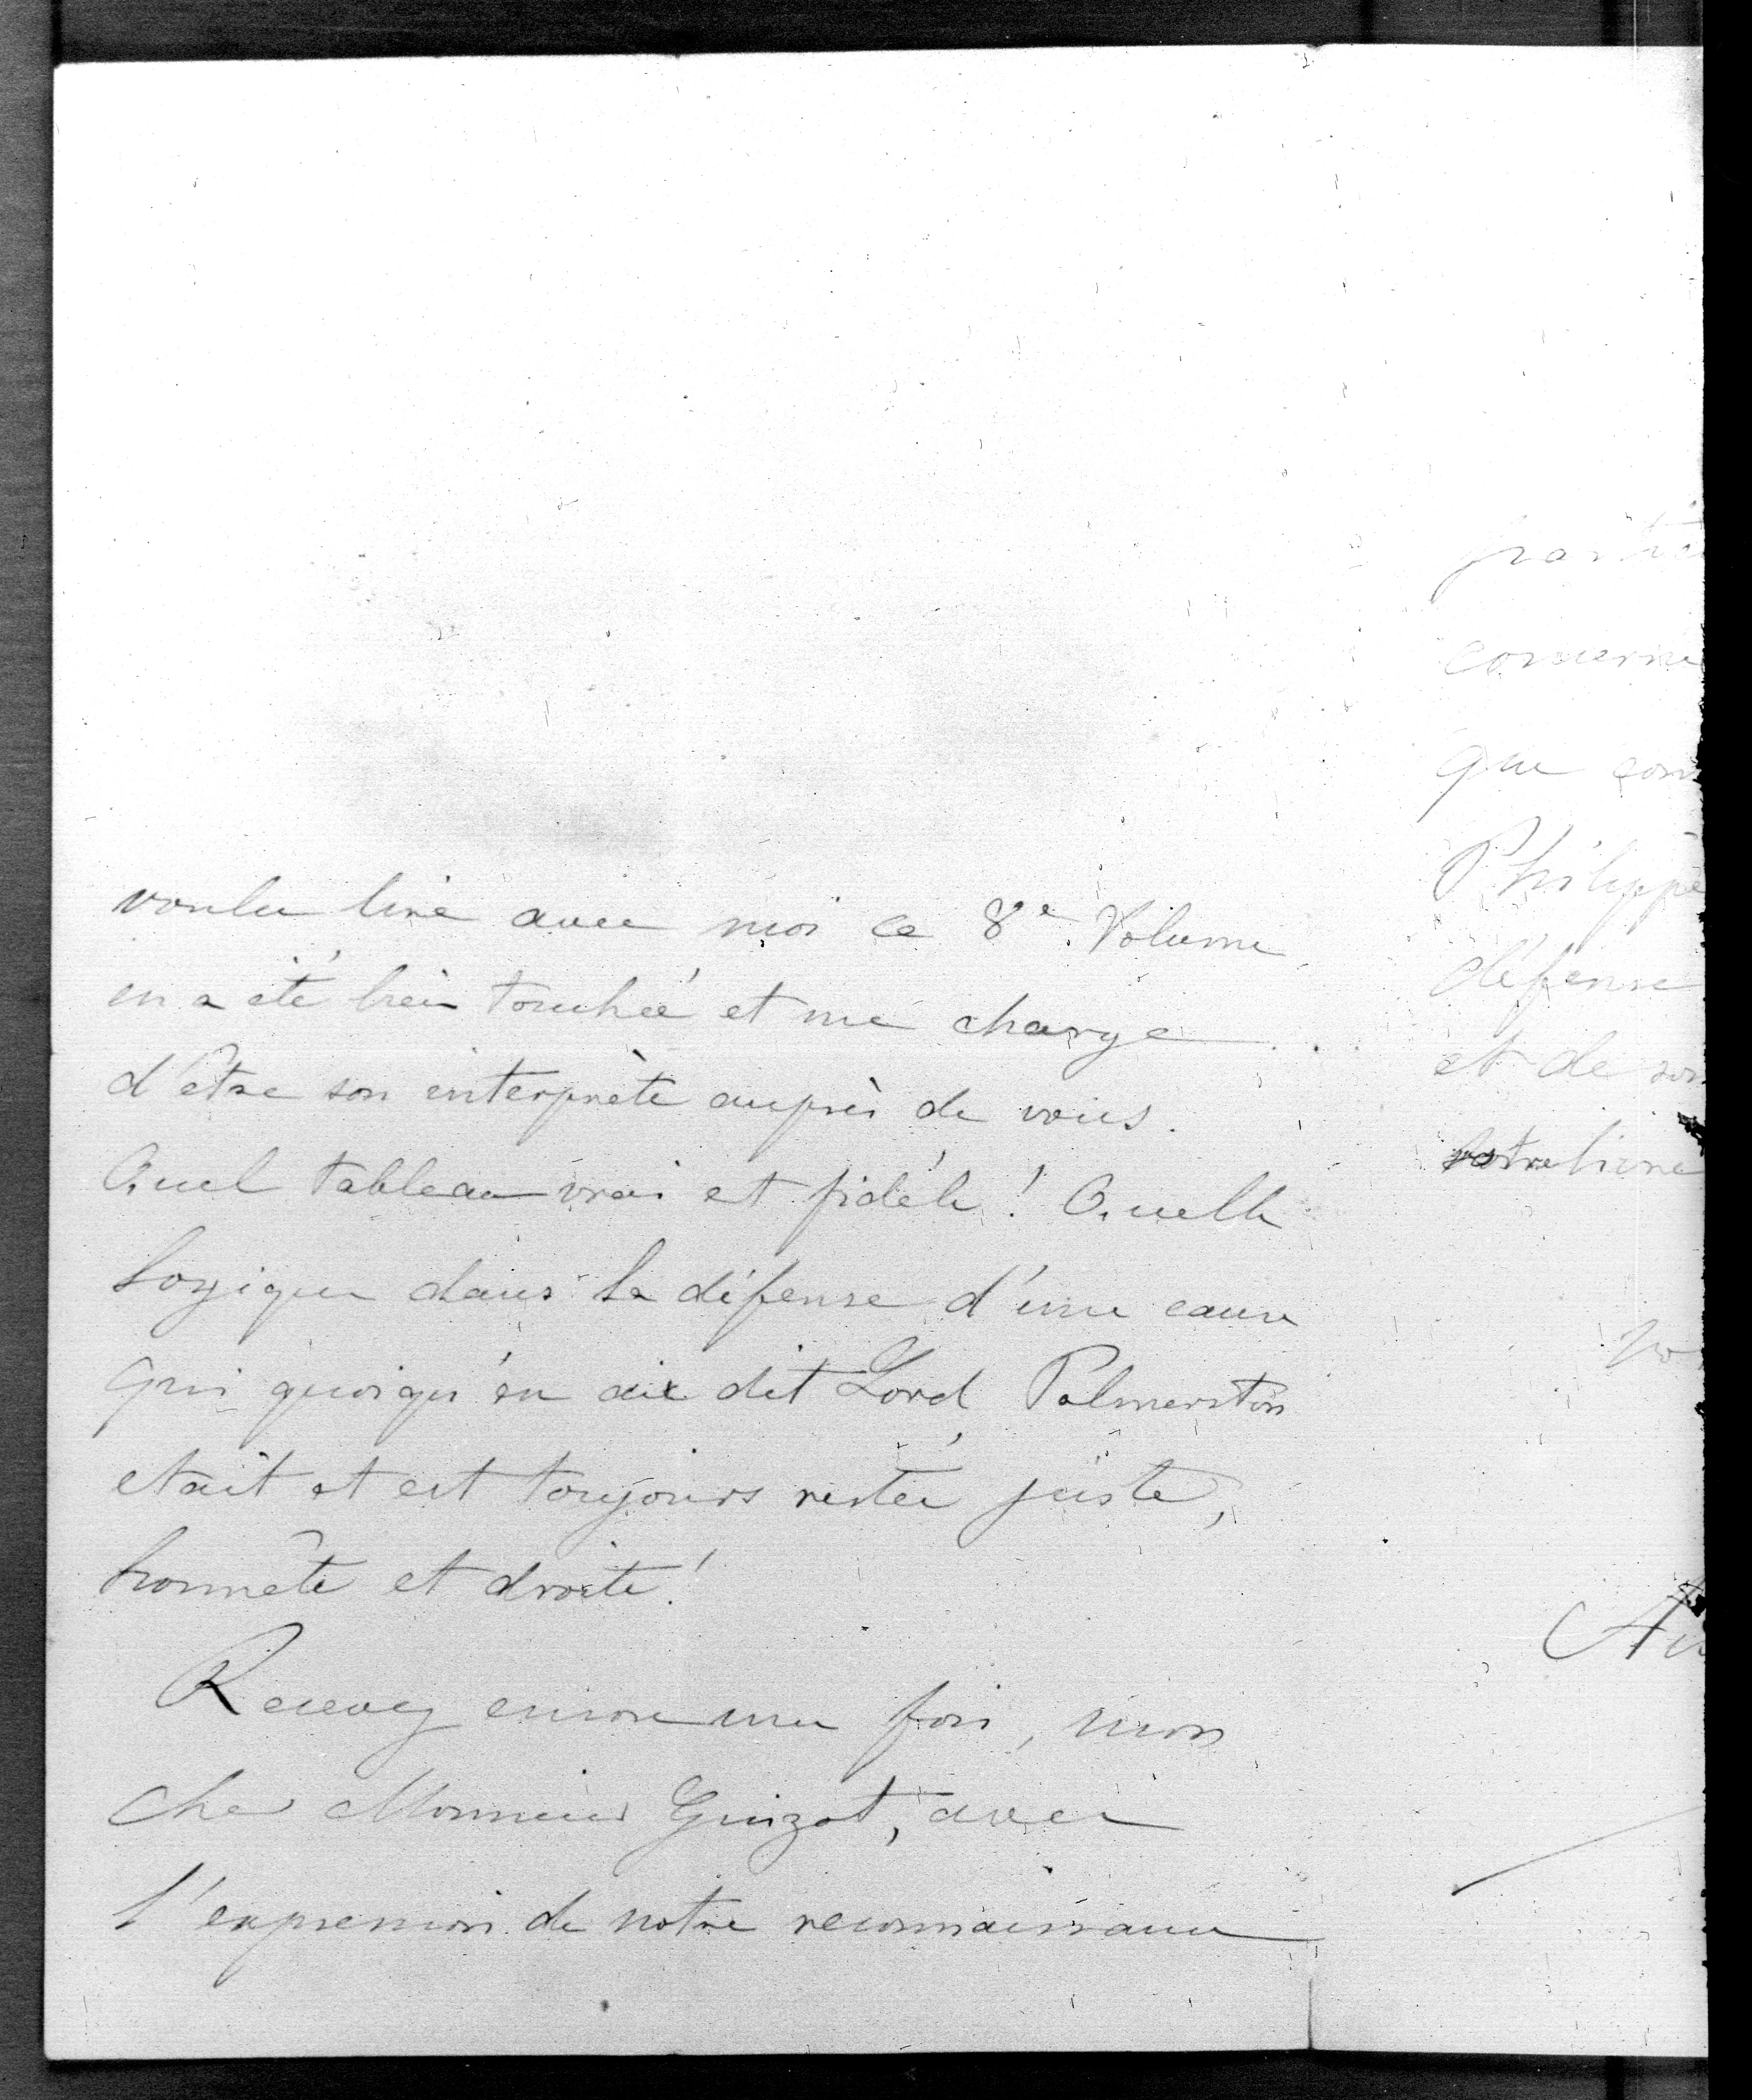 voulu lire avec moi ce 8e Volume
en a été bien touchée et me charge
d'être son interprète auprès de vous.
Quel tableau vrai et fidéle ! Quelle
logique dans la défense d'une cause
qui quoiqu'en ait dit Lord Palmerston
etait et est toujours restée juste,
honnête et droite !
Recevez encore une fois, mon
cher Monsieur Guizot, avec
l'expression de notre reconnaissance
concerne
que
Philippe
défense
et de son
votre livre